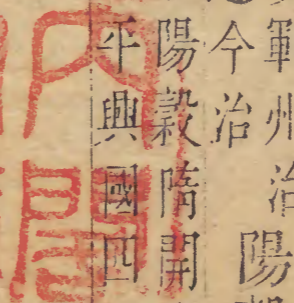 軍州治
今治
陽
陽穀隋開
平興國四